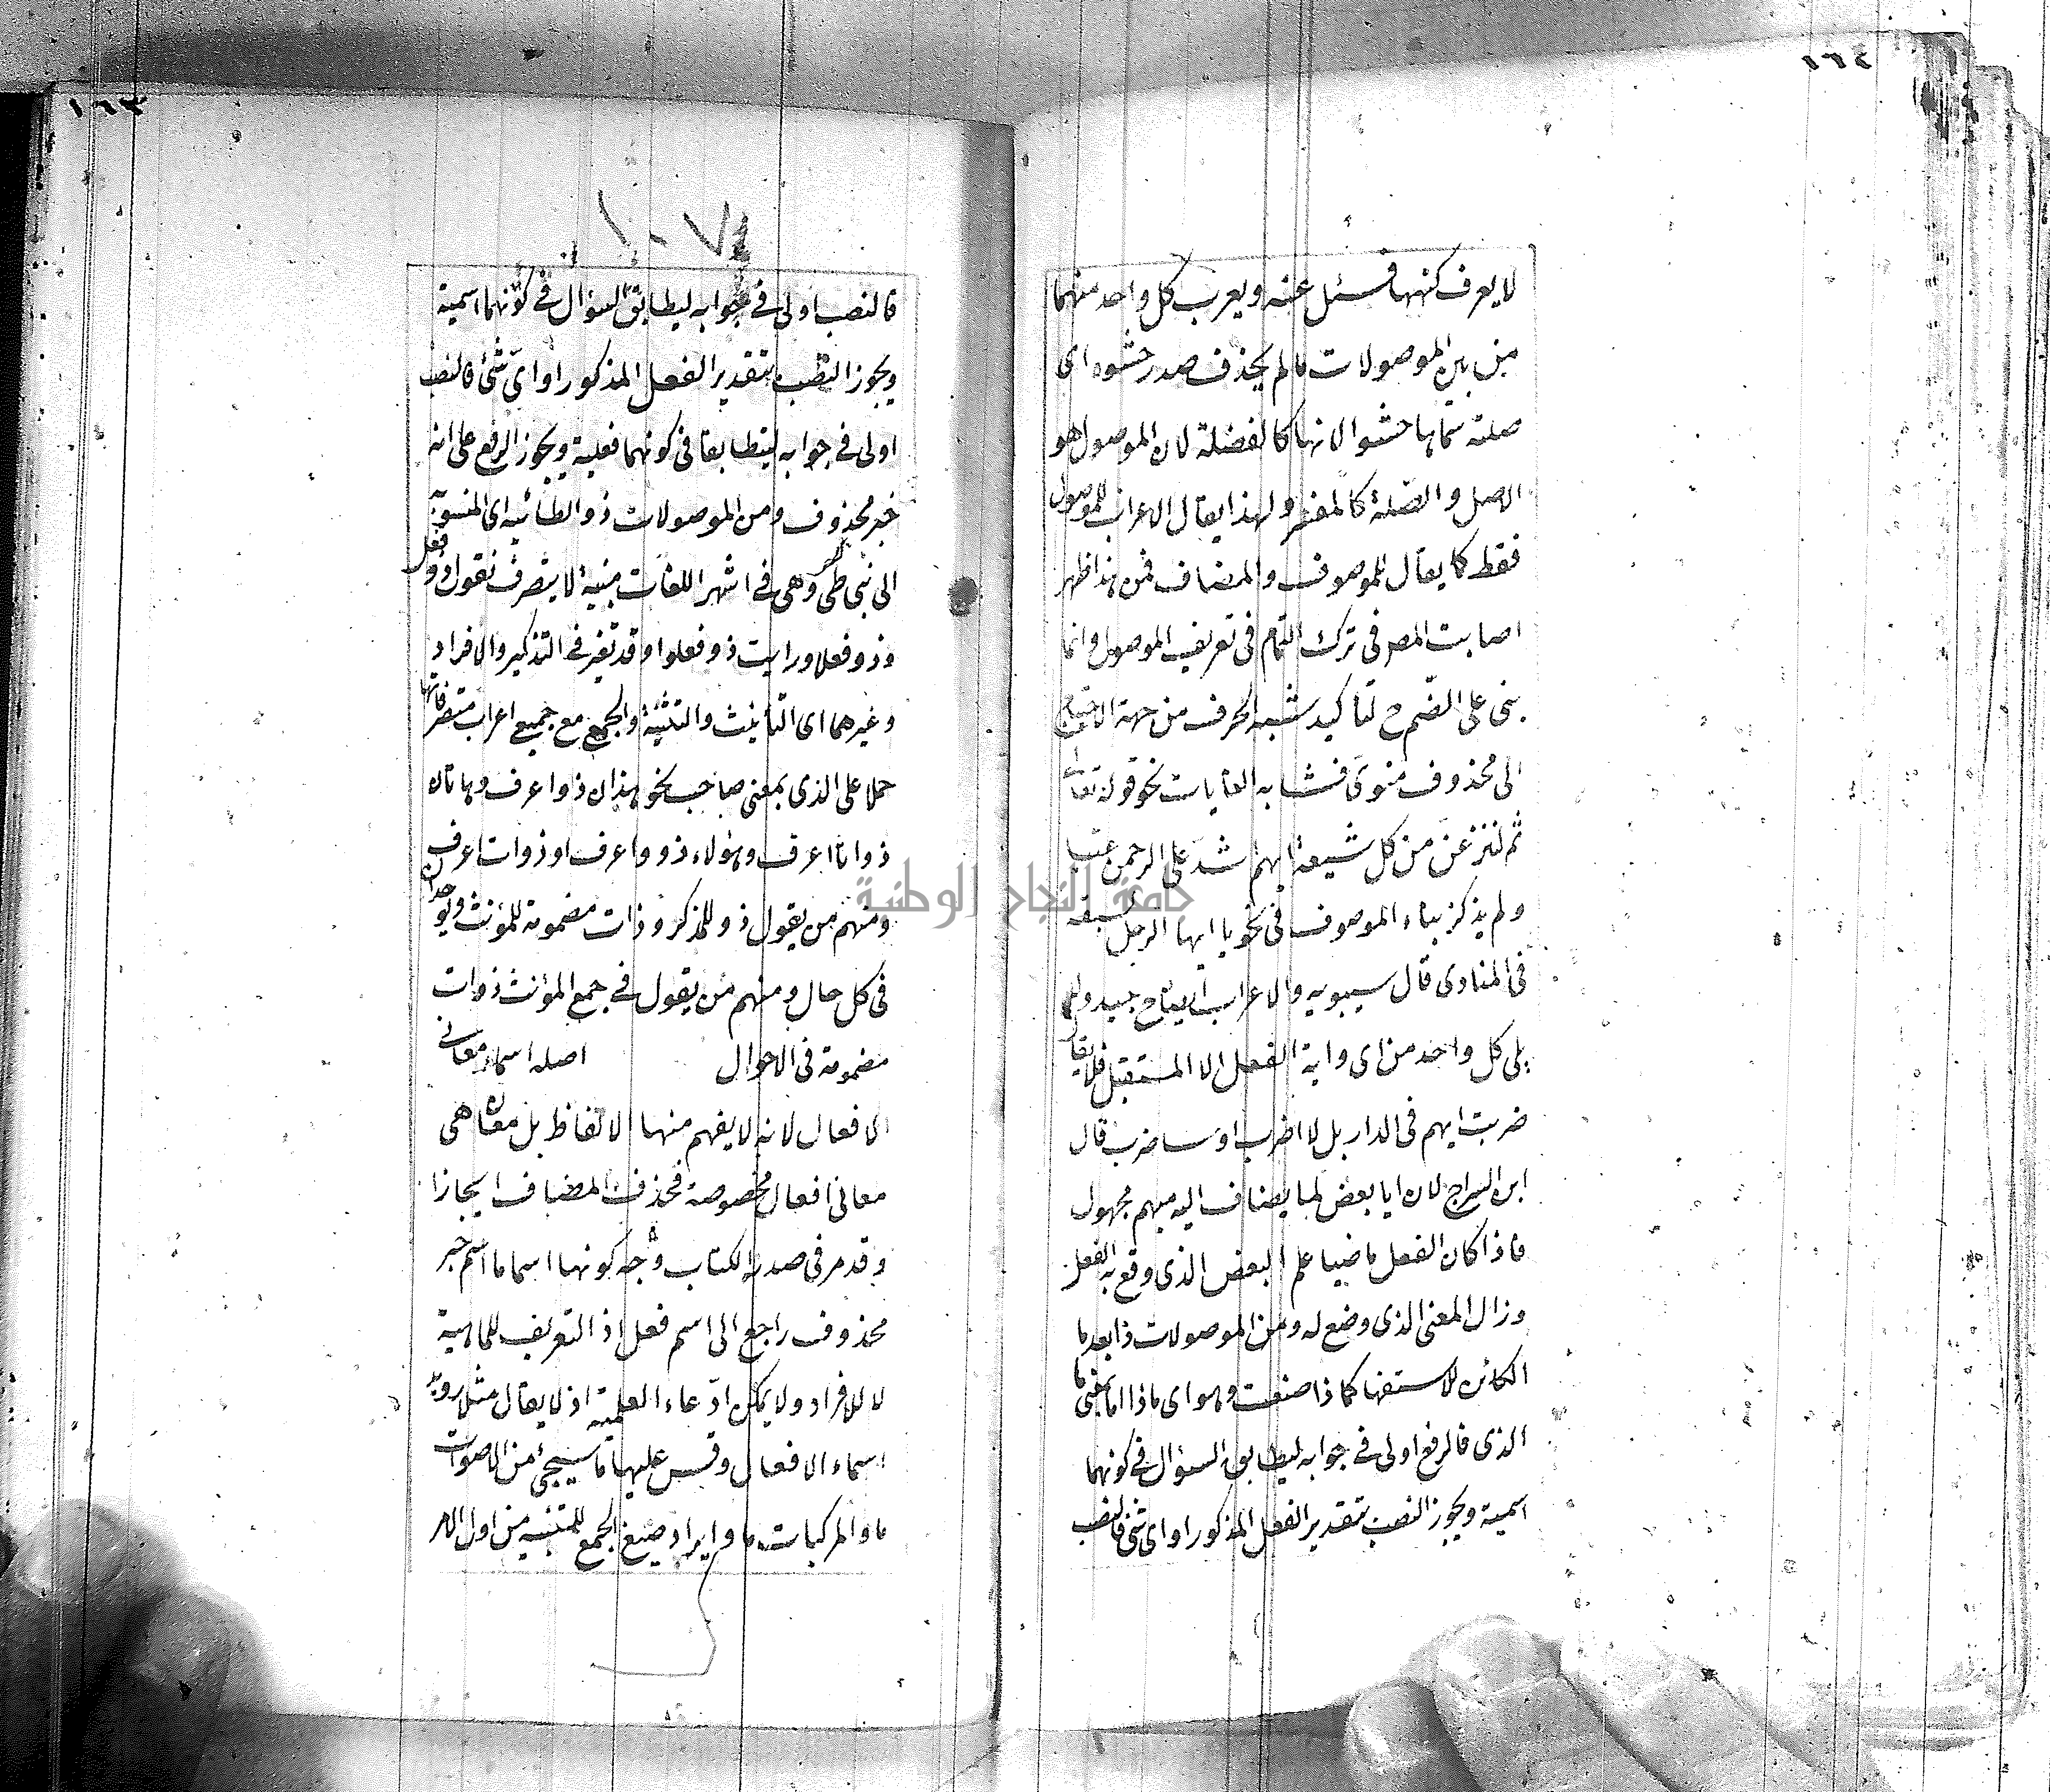 ١٦٤
لا يعرف كنهها فسئل عنه ويعرب كل واحد منهما
من بين الموصولات ما لم يحذف صدر حشوه اى
صلته سماها حشوا لانها كالفضلة لان الموصول هو
الاصل والصلة كالمفسر ولهذا يقال الاعراب للموصول
فقط كما يقال للموصوف والمضاف فمن هذا ظهر
اصابت المص فى ترك التمام فى تعريف الموصول وانما
بنى على الضم ح لتأكيد شبه الحرف من جهة الاحتياج
الى محذوف منوى فشابه الغايات نحو قوله تعالى
ثم لننزعن من كل شيعة ايهم اشد على الرحمن عتيا
ولم يذكر بناء الموصوف فى نحو يا ايها الرجل لسبقه
فى المنادى قال سيبويه والاعراب ايضا ح جيد ولم
يلى كل واحد من اى واية الفعل الا المستقبل فلا يقال
ضربت ايهم فى الدار بل لا اضرب او ساضرب قال
ابن السراج لان ايا بعض لما يضاف اليه مبهم مجهول
فاذا كان الفعل ماضيا علم البعض الذى وقع به الفعل
وزال المعنى الذى وضع له ومن الموصولات ذا بعد ما
الكائن للاستفهام كما ذا صنعت وهو اى ماذا اما بمعنى ما
الذى فالرفع اولى فى جوابه ليطابق السؤال فى كونهما
اسمية ويجوز النصب بتقدير الفعل المذكور او اى شئ فالنصب
١٦٣
١٠٧
فالنصب اولى فى جوابه ليطابق السؤال فى كونهما اسمية
ويجوز النصب بتقدير الفعل المذكور او اى شئ فالنصب
اولى فى جوابه ليتطابقا فى كونهما فعلية ويجوز الرفع على انه
خبر محذوف ومن الموصولات ذو الطائية اى المنسوبة
الى بنى طى وهى فى اشهر اللغات مبنية لا يتصرف نقول ذو فعل
وذو فعلا ورايت ذو فعلوا وقد تغير فى التذكير والافراد
وغيرهما اى التأنيث والتثنية والجمع مع جميع اعراب متصرفاتها
حملا على الذى بمعنى صاحب نحو هذان ذوا اعرف وهاتان
ذواتا اعرف وهؤلاء ذووا اعرف او ذوات اعرف
ومنهم من يقول ذو للمذكر وذات مضمومة للمؤنث ويوحدان
فى كل حال ومنهم من يقول فى جمع المؤنث ذوات
مضمومة فى الاحوال اصله اسماء معانى
الافعال لانه لا يفهم منها الالفاظ بل معناه هى
معانى افعال مخصوصة فحذف المضاف ايجازا
وقد مر فى صدر الكتاب وجه كونها اسما ما اسم خبر
محذوف راجع الى اسم فعل اذ التعريف للماهية
لا للافراد ولا يمكن ادعاء العلمية اذ لا يقال مثل رويد
اسماء الافعال وقس عليها ما سيجئ من الاصوات
ما والمركبات ما وايراد صيغ الجمع للتنبيه من اول الامر
جامعة النجاح الوطنية